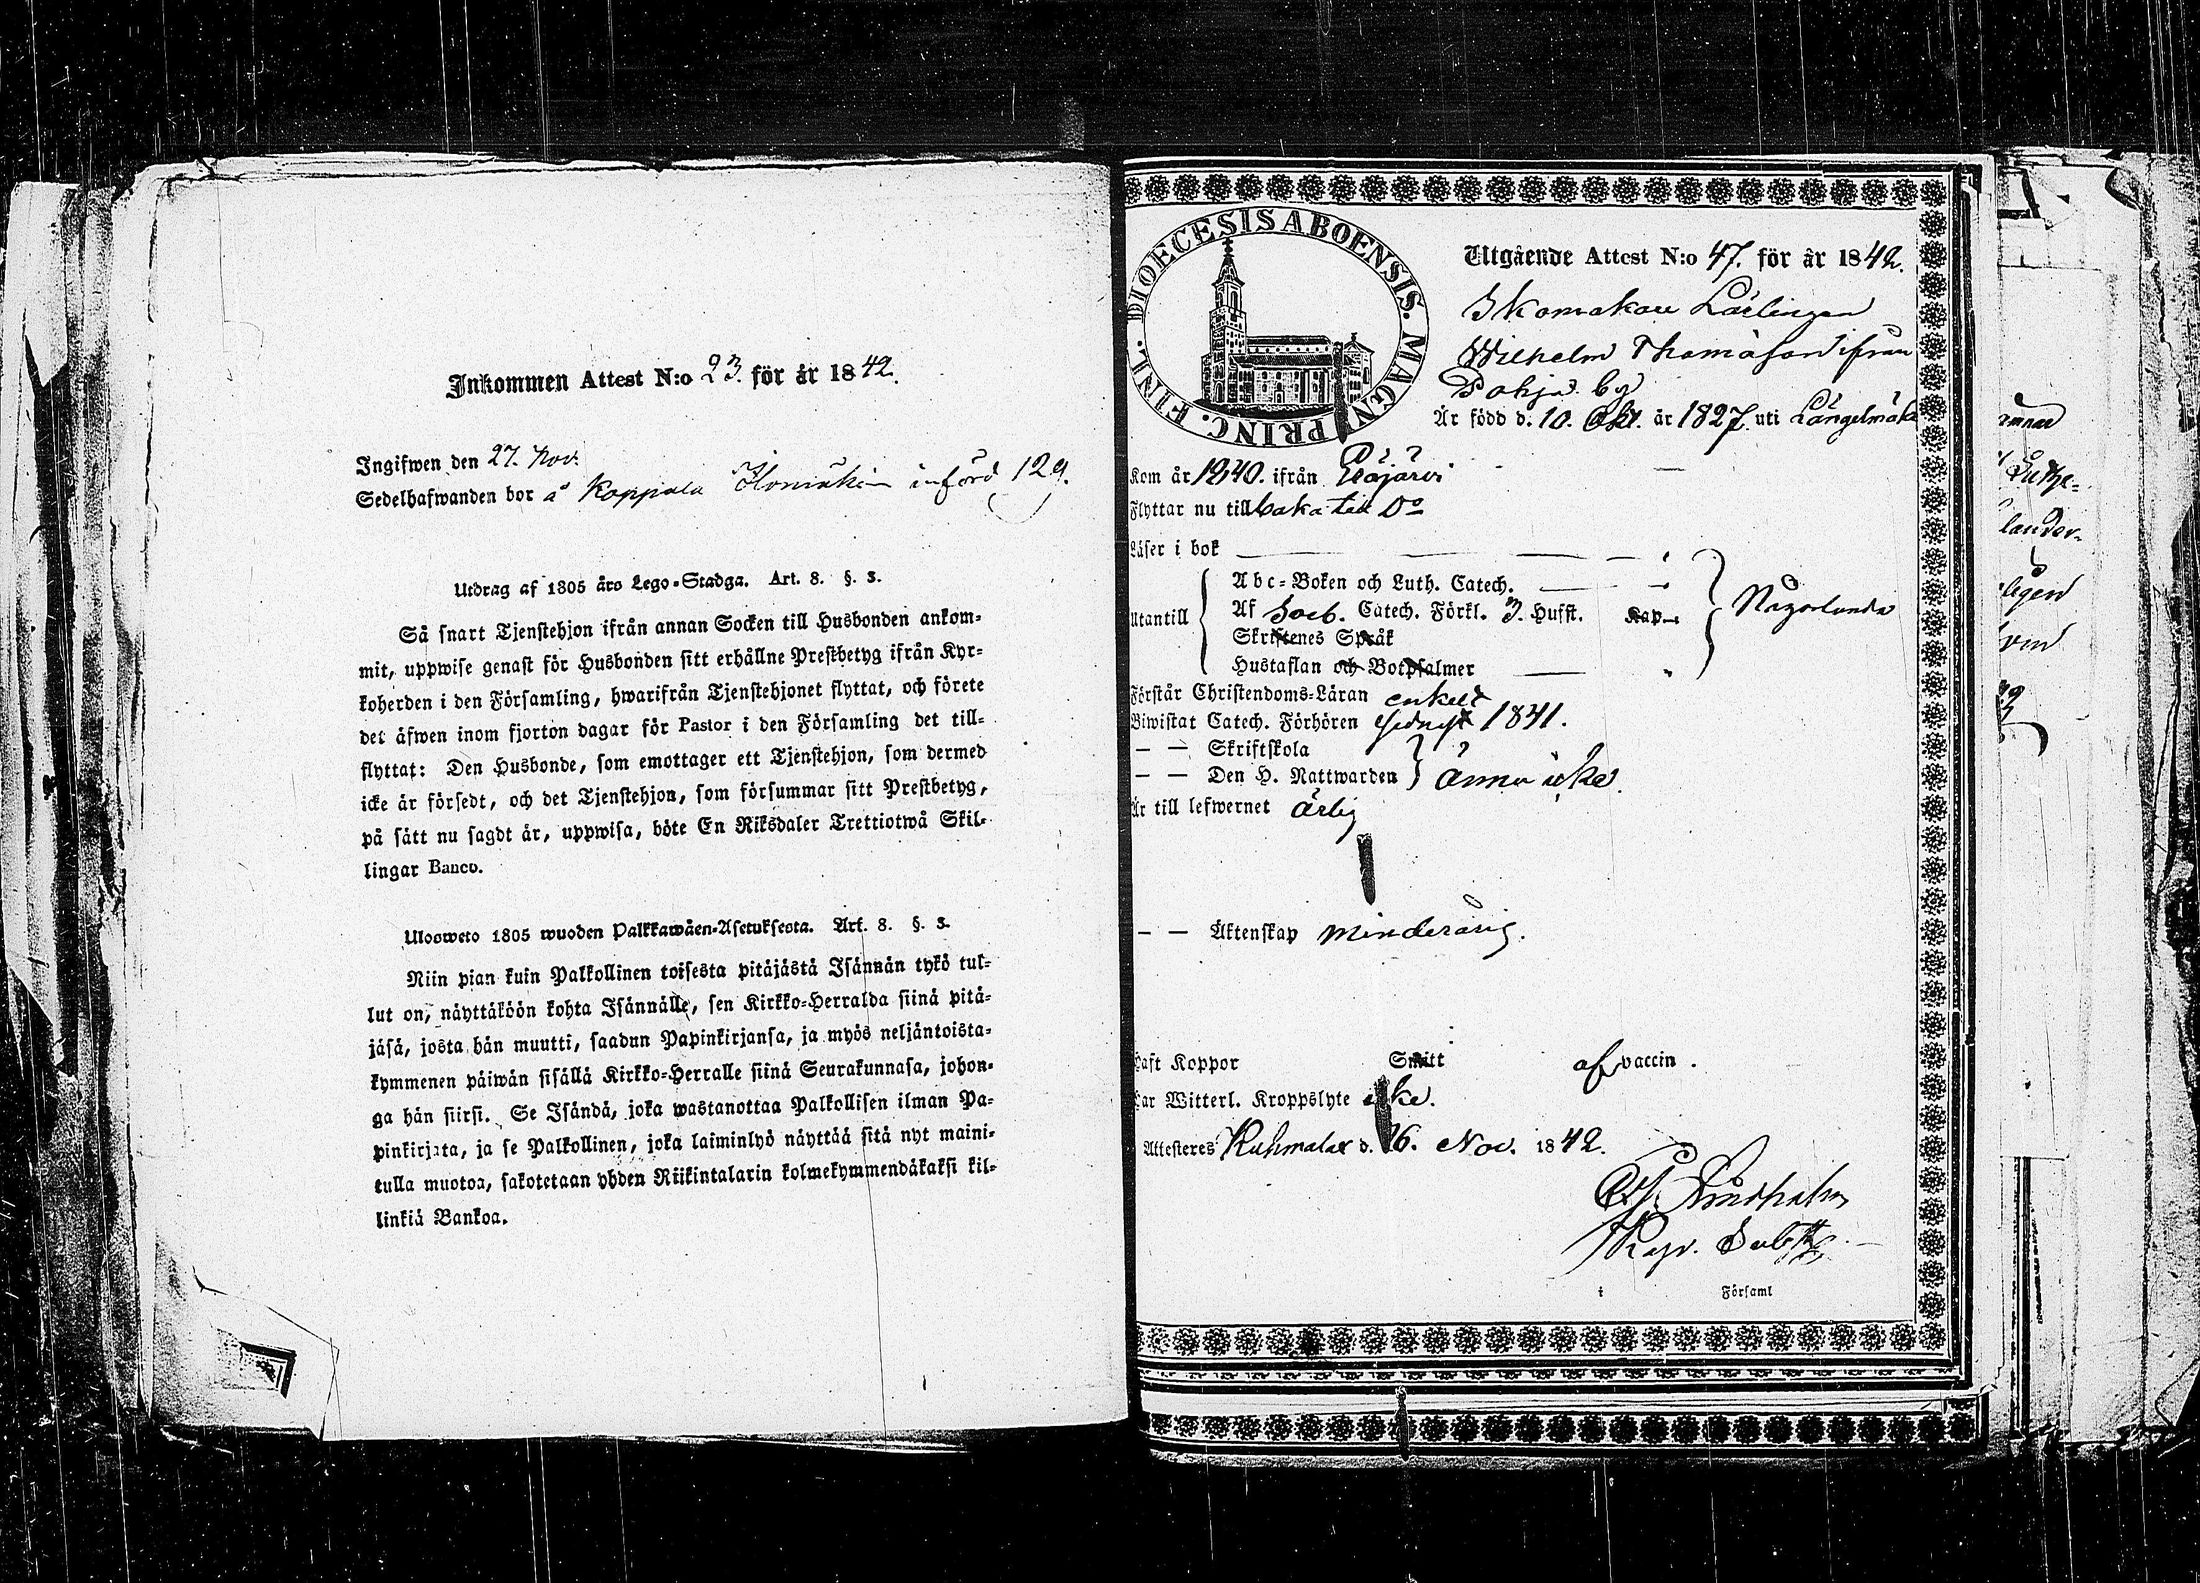 Inkommen Attest N:o 23. för år 1842.
Ingifwen den 27. Nov.
Sedelhafwanden bor å Koppala Ilomäki införd 129.
Utdrag af 1805 års Lego-Stadga. Art. 8. §. 3.
Så snart Tjenstehjon ifrån annan Socken till Husbonden ankom-
mit, uppwise genast för Husbonden sitt erhållne Prestbetyg ifrån Kyr-
koherden i den Församling, hwarifrån Tjenstehjonet flyttat, och förete
det äfwen inom fjorton dagar för Pastor i den Församling det till-
flyttat: Den Husbonde, som emottager ett Tjenstehjon, som dermed
icke är försedt, och det Tjenstehjon, som försummar sitt Prestbetyg,
på sätt nu sagdt är, uppwisa, böte En Riksdaler Trettiotwå Skil-
lingar Banco.
Ulosweto 1805 wuoden Palkkawäen-Asetuksesta. Art. 8. §. 3.
Niin pian kuin Palkollinen toisesta pitäjästä Isännän tykö tul-
lut on, näyttäköön kohta Isännälle, sen Kirkko-Herralda siinä pitä-
jäsä, josta hän muutti, saadun Papinkirjansa, ja myös neljäntoista-
kymmenen päiwän sisällä Kirkko-Herralle siinä Seurakunnasa, johon-
ga hän siirsi. Se Isändä, joka wastanottaa Palkollisen ilman Pa-
pinkirjata, ja se Palkollinen, joka laiminlyö näyttää sitä nyt maini-
tulla muotoa, sakotetaan yhden Riikintalarin kolmekymmendäkaksi kil-
linkiä Bankoa.
DIOECESIS ABOENSIS. MAGN. PRINC. FINL.
Utgående Attest N:o 47. för år 1842.
Skomakare Lärlingen
Wilhelm Thomasson ifrån
Pohja by
Är född d. 10. Okt. år 1827. uti Längelmäki
Kom år 1840. ifrån
Flyttar nu tillbaka till Do
Läser i bok
Abc-Boken och Luth. Catech.
Utantill Af Soeb. Catech. Förkl. 3. Hufst. Kap. Någorlunda
Skriftenes Språk
Hustaflan och Botpsalmer
Förstår Christendoms-Läran enkelt
Biwistat Catech. Förhören sednast 1841.
— — Skriftskola
— — Den H. Nattwarden ännu icke.
Är till lefwernet ärlig
— — Äktenskap minderårig.
Haft Koppor Smitt af vaccin.
Har Witterl. Kroppslyte icke.
Attesteres Kuhmalax d. 26. Nov. 1842.
i Församl